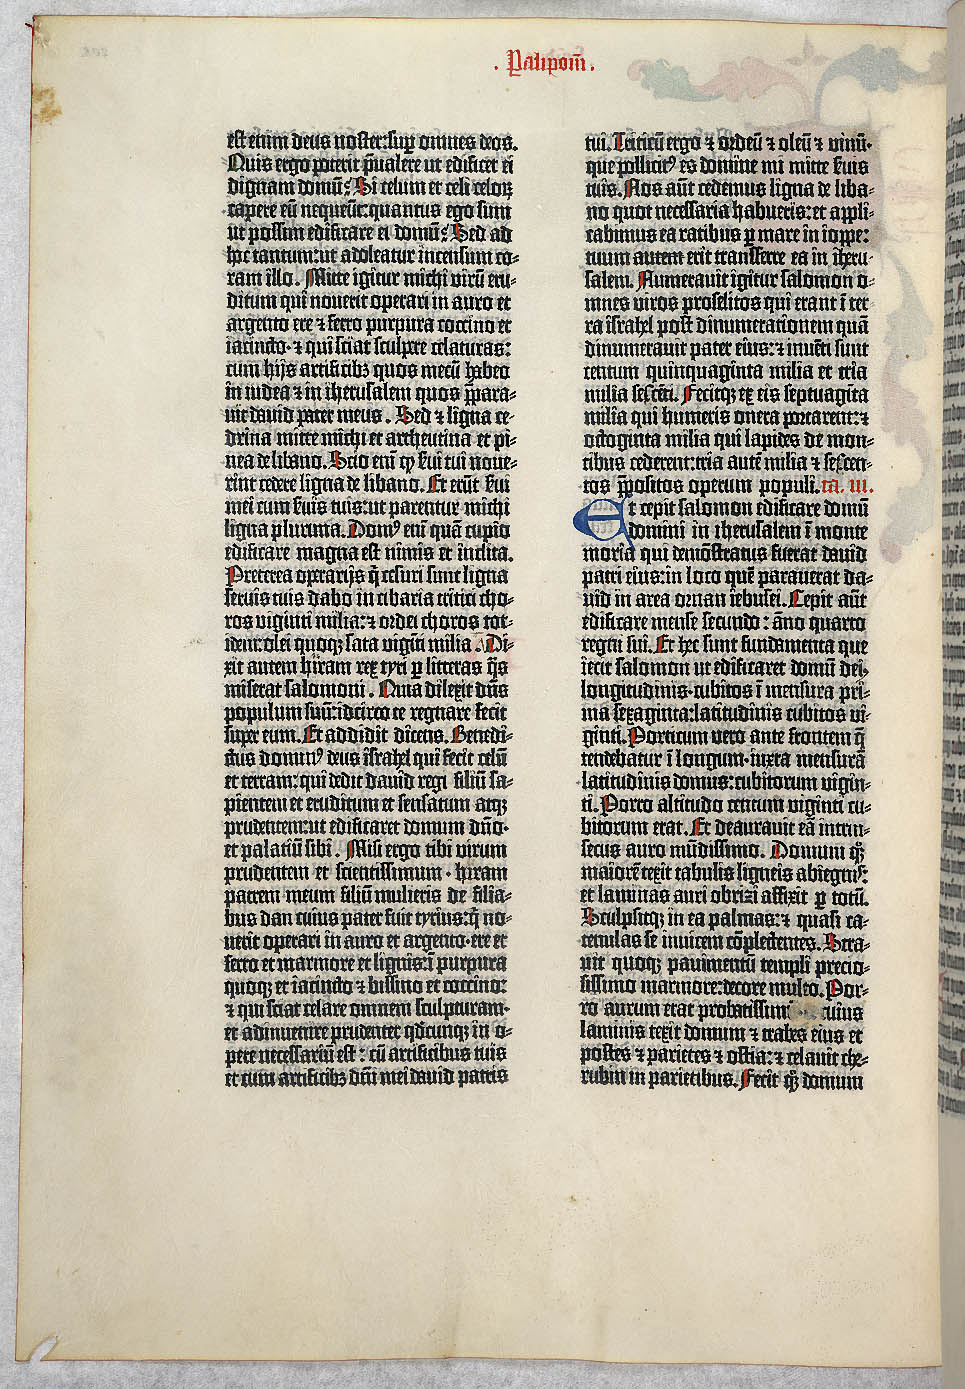 . Palipom̄.
est enim deus noster: sup̲ omnes deos.
Quis ergo poterit p̄ualere ut edificet ei
dignam domū? Si celum et celi celoꝝ
capere eū nequeūt: quantus ego sum
ut possim edificare ei domū? Sed ad
hoc tantum: ut adoleatur incensum co-
ram illo. Mitte igitur michi virū eru-
ditum qui nouerit operari in auro et
argento ere ⁊ ferro purpura coccino et
iacincto· ⁊ qui sciat sculpere celaturas:
cum hijs artificibꝫ quos mecū habeo
in iudea ⁊ in iherusalem quos p̄para-
uit dauid pater meus. Sed ⁊ ligna ce-
drina mitte michi et archeutina et pi-
nea de libano. Scio enī ꝙ s̄ui tui noue-
rint cedere ligna de libano. Et erūt s̄ui
mei cum s̄uis tuis: ut parentur michi
ligna plurima. Domꝰ enī quā cupio
edificare magna est nimis et inclita.
Preterea operarijs q̄ cesuri sunt ligna
seruis tuis dabo in cibaria tritici cho-
ros viginti milia: ⁊ ordei choros tot-
idem: olei quoqꝫ sata viginti milia. Di-
xit autem hiram rex tyri ꝑ litteras q̄s
miserat salomoni. Quia dilexit dn̄s
populum suū: idcirco te regnare fecit
super eum. Et addidit dicens. Benedi-
ctus dominꝰ deus israhel qui fecit celū
et terram: qui dedit dauid regi filiū sa-
pientem et eruditum et sensatum atqꝫ
prudentem: ut edificaret domum dn̄o·
et palatiū sibi. Misi ergo tibi virum
prudentem et scientissimum· hiram
patrem meum filiū mulieris de filia-
bus dan cuius pater fuit tyrius: q̄ no-
uerit operari in auro et argento· ere et
ferro et marmore et lignis: ī purpura
quoqꝫ et iacincto ⁊ bissino et coccino:
⁊ qui sciat celare omnem sculpturam·
et adinuenire prudenter qd̄cunqꝫ in o-
pere necessariū est: cū artificibus tuis
et cum artificibꝫ dn̄i mei dauid patris
tui. Triticū ergo ⁊ ordeū ⁊ oleū ⁊ vinū·
que pollicitꝰ es domine mi mitte s̄uis
tuis. Nos aūt cedemus ligna de liba-
no quot necessaria habueris: et appli-
cabimus ea ratibus ꝑ mare in ioppe:
tuum autem erit transferre ea in iheru-
salem. Numerauit igitur salomon o-
mnes viros proselitos qui erant ī ter-
ra israhel post dinumerationem quā
dinumerauit pater eius: ⁊ inuēti sunt
centum quinquaginta milia et tria
milia sexcēti. Fecitqꝫ ex eis septuaginta
milia qui humeris onera portarent: ⁊
octoginta milia qui lapides de mon-
tibus cederent: tria autē milia ⁊ sexcen-
tos p̄positos operum populi. ca. III.
Et cepit salomon edificare domū
domini in iherusalem ī monte
moria qui demōstratus fuerat dauid
patri eius: in loco quē parauerat da-
uid in area ornan iebusei. Cepit aūt
edificare mense secundo: āno quarto
regni sui. Et hec sunt fundamenta que
iecit salomon ut edificaret domū dei,
longitudinis· cubitos ī mensura pri-
ma sexaginta: latitudinis cubitos vi-
ginti. Porticum vero ante frontem q̄
tendebatur ī longum· iuxta mensurā
latitudinis domus: cubitorum vigin-
ti. Porro altitudo centum viginti cu-
bitorum erat. Et deaurauit eā intrin-
secus auro mūdissimo. Domum qꝫ
maiorē texit tabulis ligneis abiegnis:
et laminas auri obrizi affixit ꝑ totū.
Sculpsitqꝫ in ea palmas: ⁊ quasi ca-
tenulas se inuicem cōplectentes. Stra-
uit quoqꝫ pauimentū templi precio-
sissimo marmore: decore multo. Por-
ro aurum erat probatissimū cuius
laminis texit domum ⁊ trabes eius et
postes ⁊ parietes ⁊ ostia: ⁊ celauit che-
rubin in parietibus. Fecit qꝫ domum